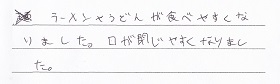 ラーメンやうどんが食べやすくな
りました。口が閉じやすくなりまし
た。